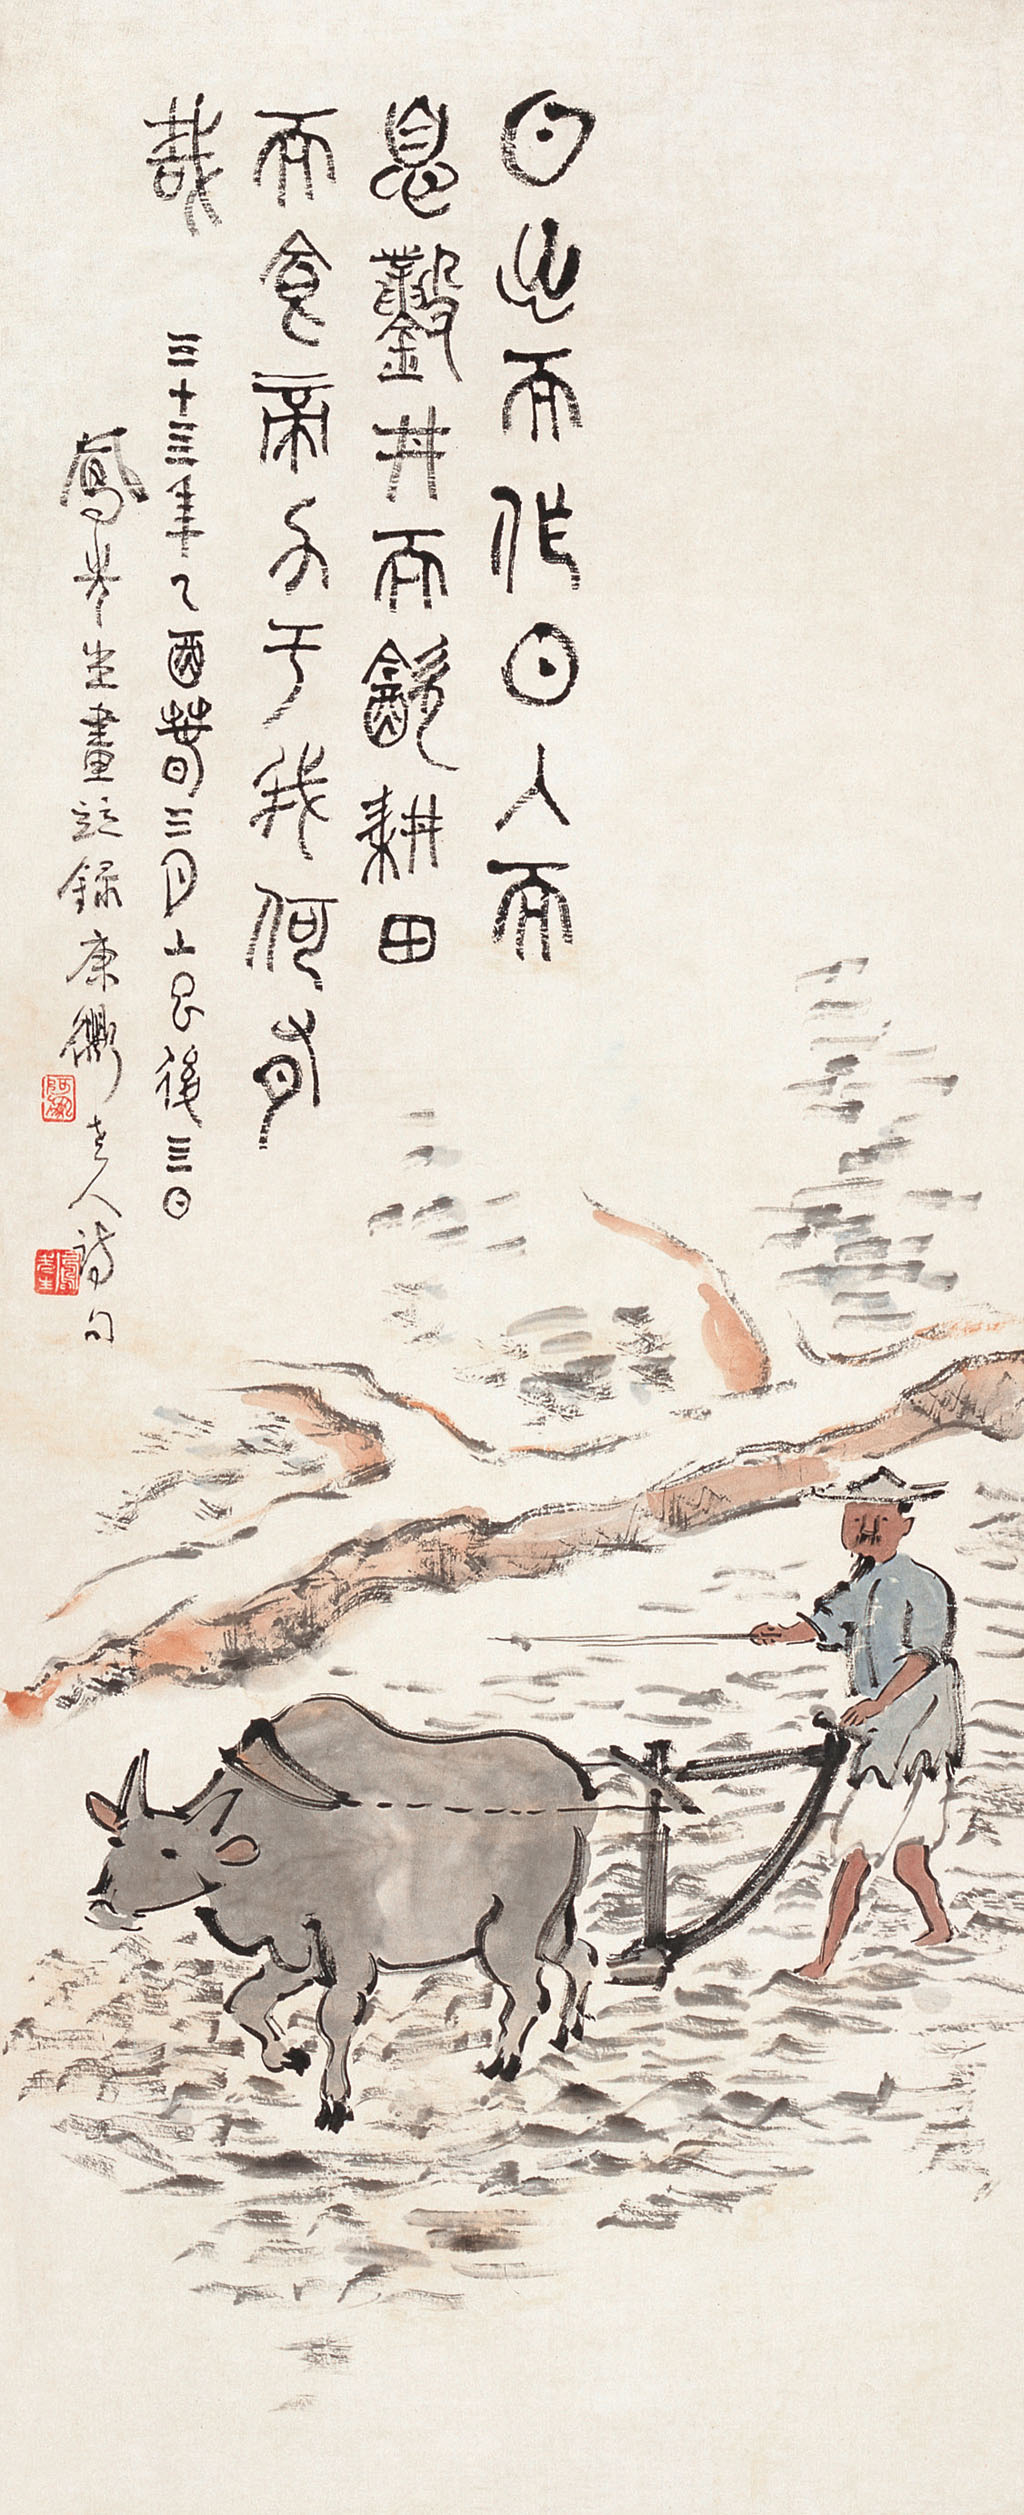 日出而作日入而
息鑿井而飲耕田
而食帝力于我何有
哉
三十亖年乙酉春三月上巳後三日
鳳先生畫並錄康衢老人詩句
阿鳳
鳳先生